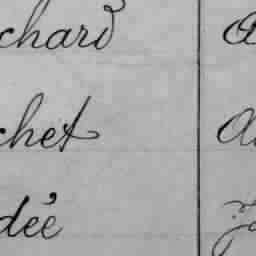 chard
chet
dée